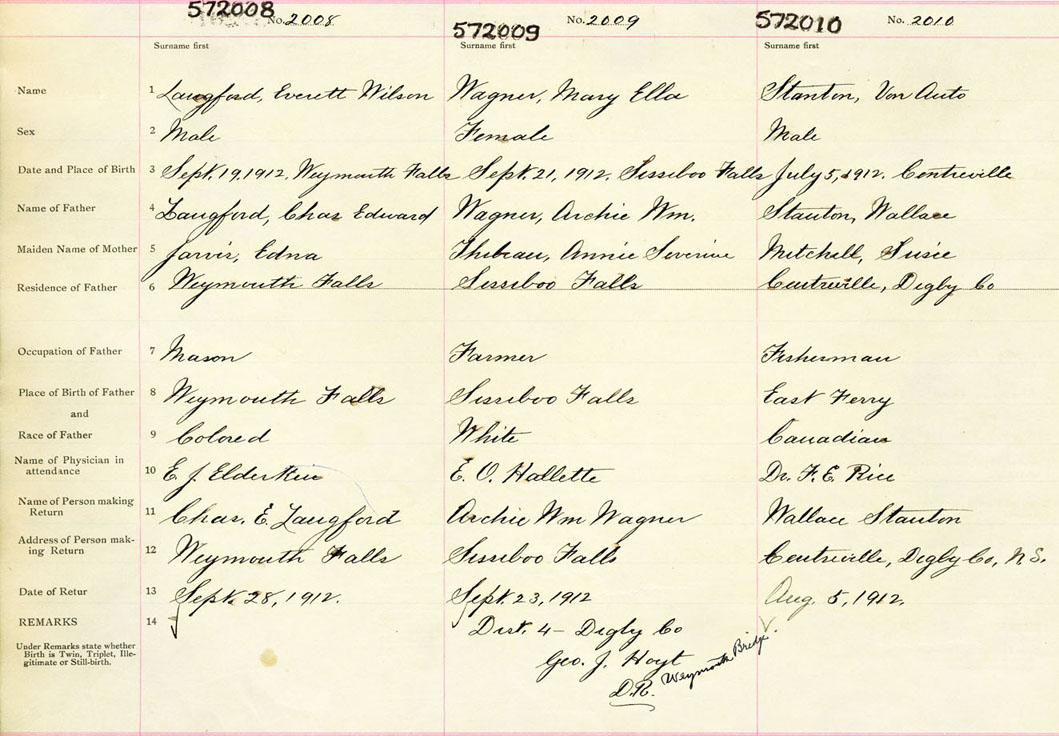 572008 No. 2008 572009 No. 2009 572010 No. 2010
Surname first Surname first Surname first
Name 1 Langford, Everett Wilson Wagner, Mary Ella Stanton, Von Auto
Sex 2 Male Female Male
Date and Place of Birth 3 Sept. 19, 1912. Weymouth Falls Sept. 21, 1912. Sissiboo Falls July 5, 1912. Centreville
Name of Father 4 Langford, Chas Edward Wagner, Archie Wm. Stanton, Wallace
Maiden Name of Mother 5 Jarvis, Edna Thibeau, Annie Severine Mitchell, Susie
Residence of Father 6 Weymouth Falls Sissiboo Falls Centreville, Digby Co
Occupation of Father 7 Mason Farmer Fisherman
Place of Birth of Father 8 Weymouth Falls Sissiboo Falls East Ferry
and
Race of Father 9 Colored White Canadian
Name of Physician in
attendance 10 E. J. Elderkin E. O. Hallette Dr. F. E. Rice
Name of Person making
Return 11 Chas. E. Langford Archie Wm Wagner Wallace Stanton
Address of Person mak-
ing Return 12 Weymouth Falls Sissiboo Falls Centreville, Digby Co, N.S.
Date of Retur 13 Sept. 28, 1912. Sept. 23, 1912 Aug. 5, 1912.
REMARKS 14 Dist. 4 – Digby Co
Under Remarks state whether
Birth is Twin, Triplet, Ille-
gitimate or Still-birth.
Geo. J. Hoyt
D.R. Weymouth Bridge.